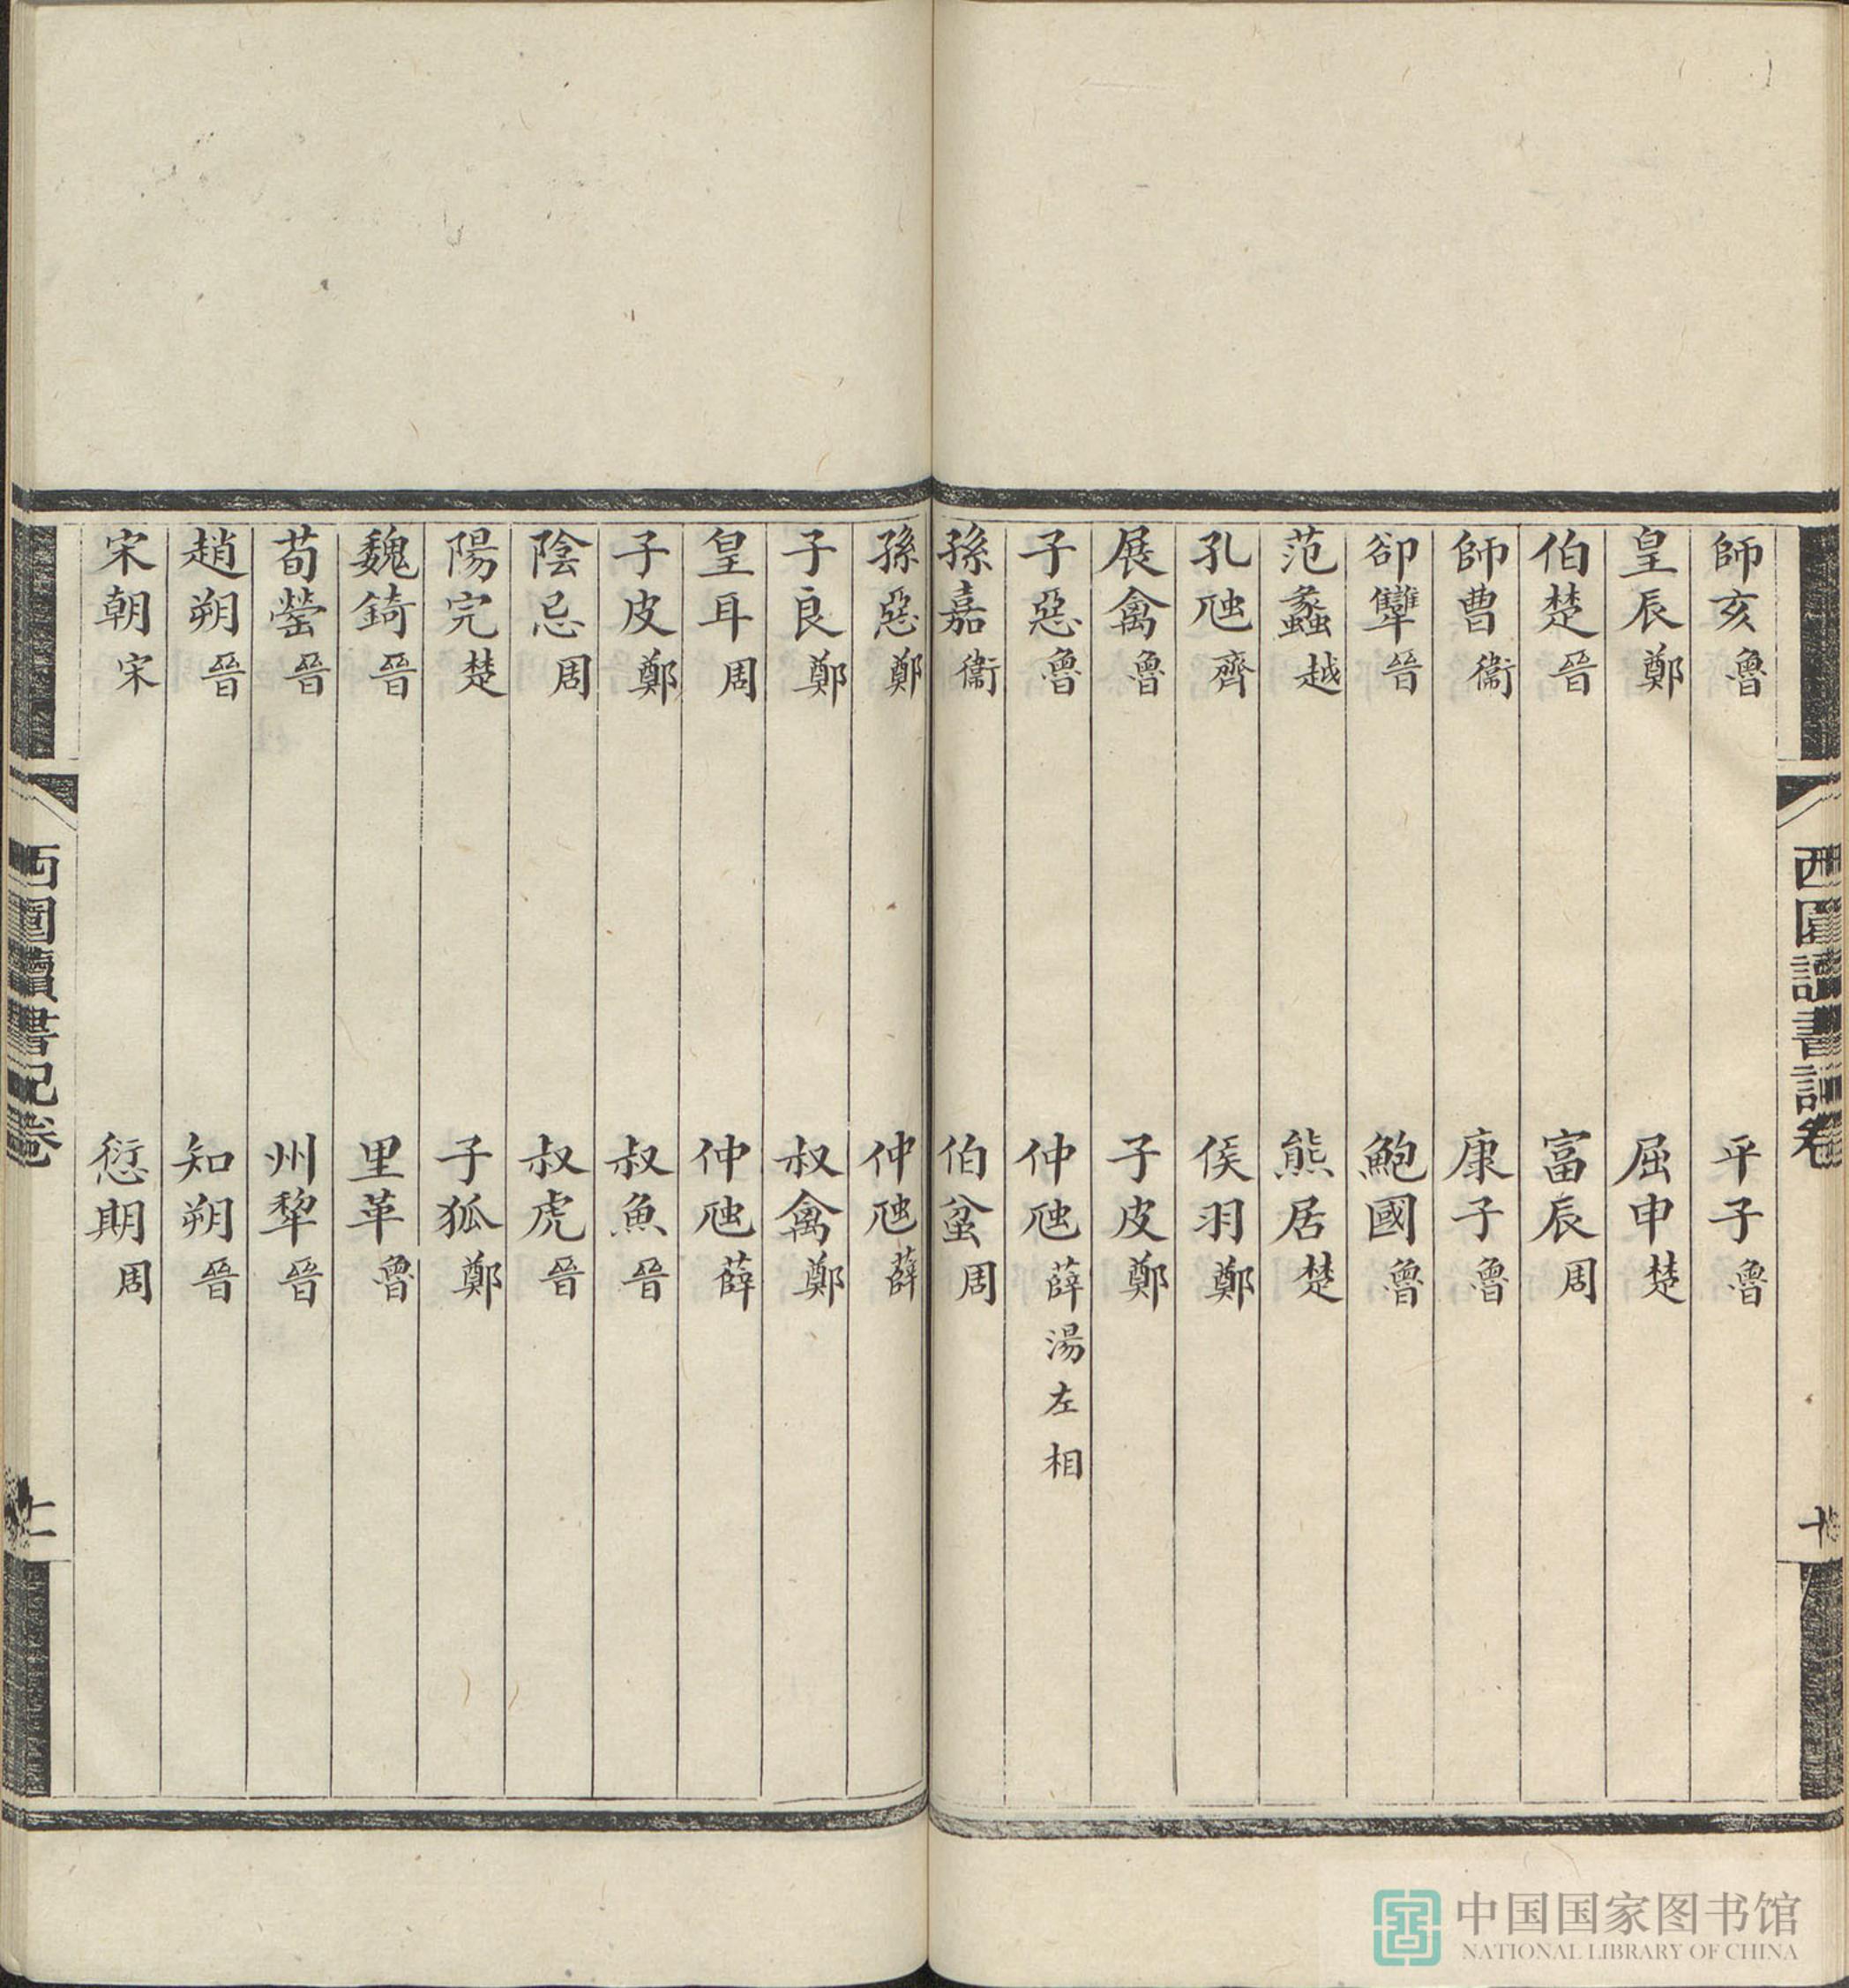 西圃讀書記卷
師亥魯 平子魯
皇辰鄭 屈申楚
伯楚晉 富辰周
師曹衞 康子魯
郤犨晉 鮑國魯
范蠡越 熊居楚
孔虺齊 侯羽鄭
展禽魯 子皮鄭
子惡魯 仲虺薛湯左相
孫嘉衞 伯蚠周
孫惡鄭 仲虺薛
子良鄭 叔禽鄭
皇耳周 仲虺薛
子皮鄭 叔魚晉
陰忌周 叔虎晉
陽完楚 子狐鄭
魏錡晉 里革魯
荀罃晉 州犂晉
趙朔晉 知朔晉
宋朝宋 愆期周
西圃讀書記卷
十一
中国国家图书馆
NATIONAL LIBRARY OF CHINA